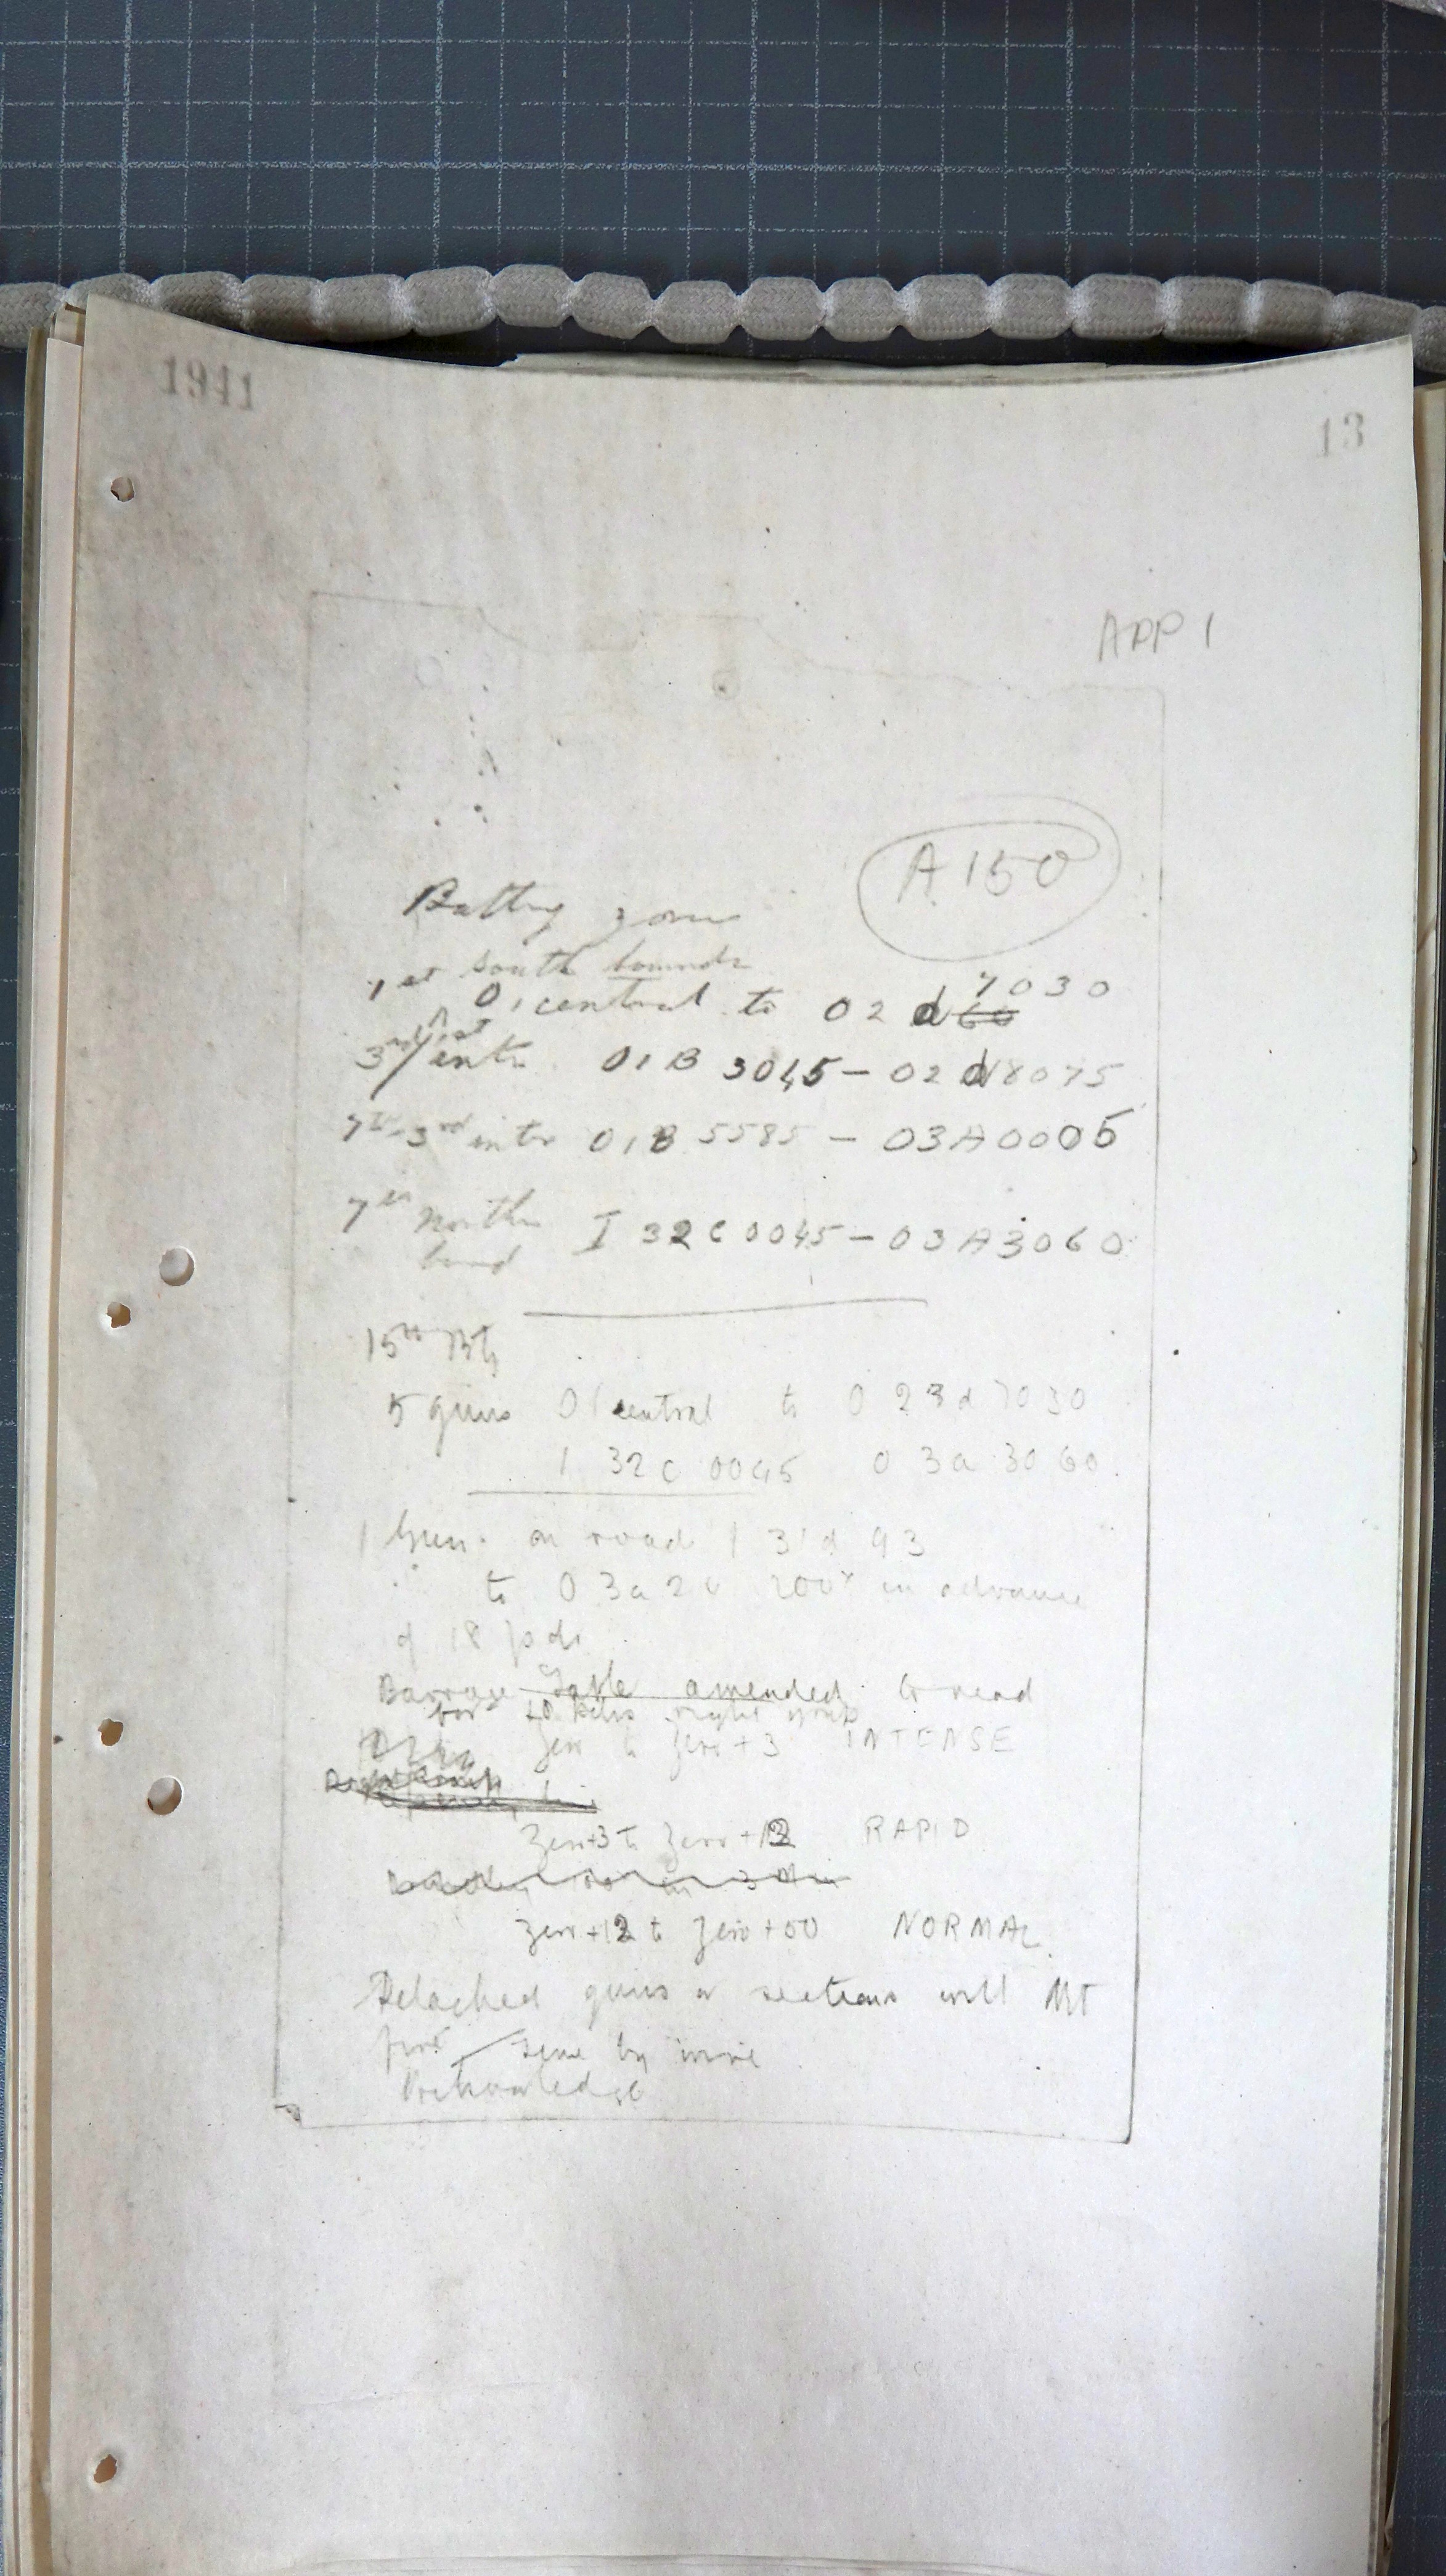 1941
13
APP 1
A 150
Battery zones
1st South bounds
7030
01 central to 02 d 60
3rd/1st inter 01B 3045 – 02 d 8075
7th-3rd inter 01B 5585 – 03A 0005
7th Northn I 32 C 0045 – 03A 3060
bound
15th Bty
5 guns 01 central to 0 23 d 7030
I 32 c 0045 0 3a 3060
1 Gun. on road I 31 d 93
to 0 3a 2 200x in advance
of 18 pdr
Barrage Table amended to read
for right group
Zero to Zero + 3 INTENSE
Zero+3 to Zero + 12 RAPID
Zero +12 to Zero + 50 NORMAL
Detached guns or sections will not
fire
Acknowledge